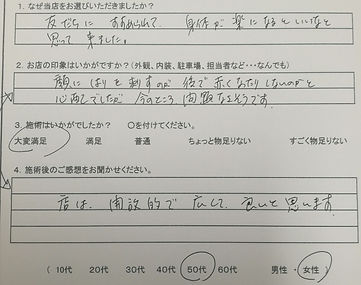 1. なぜ当店をお選びいただきましたか？
友だちに すすめられて、身体が 楽に なると いいなと
思って 来ました。
2. お店の印象はいかがですか？（外観、内装、駐車場、担当者など・・・なんでも）
顔に はりを 刺すのが 後で 赤くなったり しないかと
心配でしたが 今のところ 問題なさそうです。
3. 施術はいかがでしたか？　○を付けてください。
大変満足　満足　普通　ちょっと物足りない　すごく物足りない
4. 施術後のご感想をお聞かせください。
店は、開放的で 広くて、良いと 思います。
（ 10代　20代　30代　40代　50代　60代　男性 ・ 女性 ）